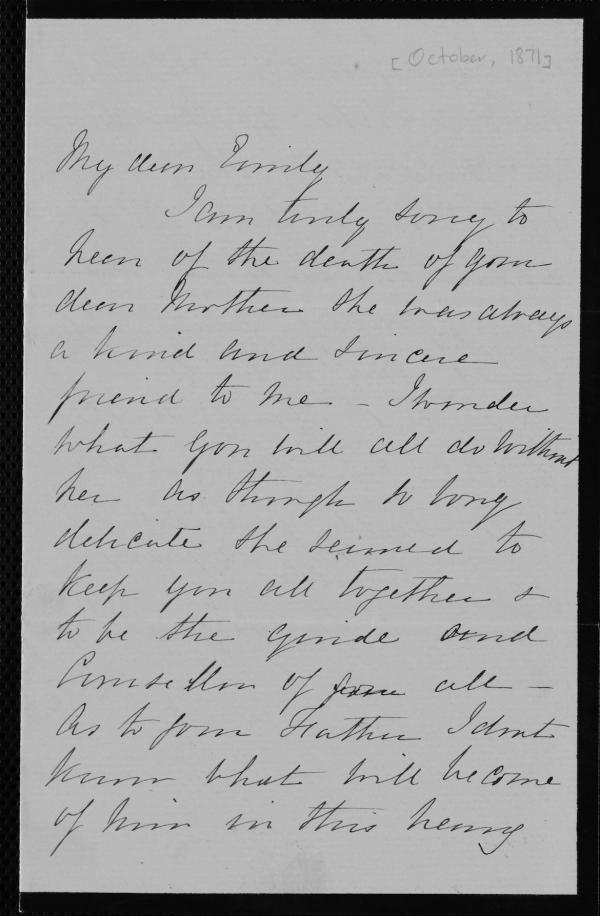 [October, 1871]
My dear Emily
I am truly sorry to
hear of the death of your
dear Mother She was always
a kind and sincere
friend to me - I wonder
what you will all do without
her as though so long
delicate she seemed to
keep you all together &
to be the guide and
Counsellor of all -
As to your Father I dont
know what will become
of him in this heavy